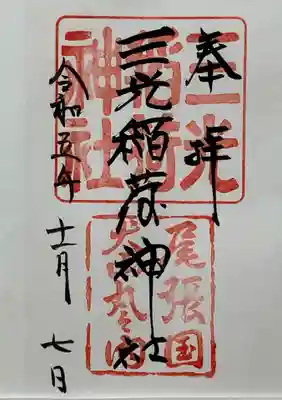 奉拝
三光稲荷神社
令和五年
十一月
七日
三光
稲荷
神社
尾張国
犬山丸之内